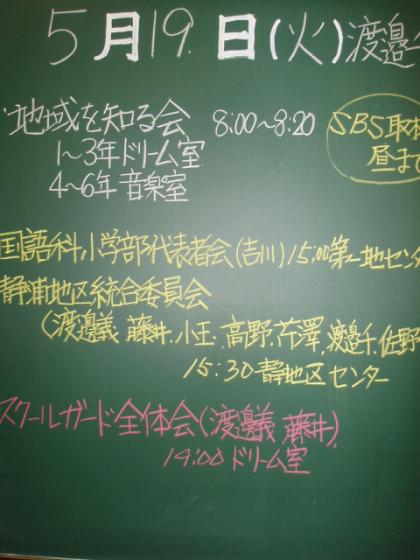 5月19日(火)渡邉
・地域を知る会 8:00〜8:20
1〜3年ドリーム室
4〜6年音楽室
SBS取材
昼まで
国語科小学部代表者会(吉川)15:00第一地センタ
静浦地区統合委員会
(渡邉義 藤井.小玉.高野.芹澤.渡邉千.佐野
15:30静地区センター
スクールガード全体会(渡邉義 藤井)
14:00ドリーム室